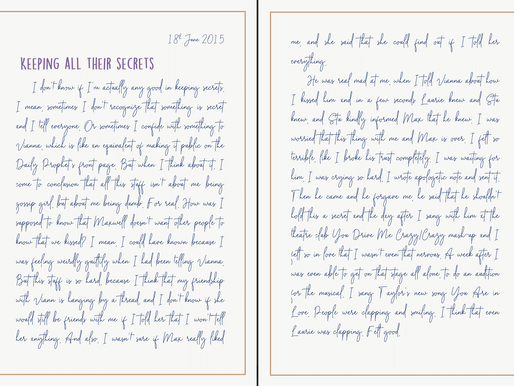 18th June 2015
KEEPING ALL THEIR SECRETS
I don't know if I'm actually any good in keeping secrets.
I mean, sometimes I don't recognize that something is secret
and I tell everyone. Or sometimes I confide with something to
Vianna, which is like an equivalent of making it public on the
Daily Prophet's front page. But when I think about it, I
come to conclusion that all this staff isn't about me being
gossip girl, but about me being dumb. For real. How was I
supposed to know that Maxwell doesn't want other people to
know that we kissed? I mean, I could have known because I
was feeling weirdly guiltily when I had been telling Vianna.
But this staff is so hard, because I think that my friendship
with Viann is hanging by a thread and I don't know if she
would still be friends with me if I told her that I won't tell
her anything. And also, I wasn't sure if Max really liked
me, and she said that she could find out if I told her
everything.
He was real mad at me, when I told Vianna about how
I kissed him and in a few seconds Laurie knew and Sta
knew and Sta kindly informed Max that he knew. I was
worried that this thing with me and Max is over. I felt so
terrible, like I broke his trust completely. I was waiting for
him, I was crying so hard, I wrote apologetic note and sent it.
Then he came and he forgave me, he said that he shouldn't
hold this a secret and the day after I sang with him at the
theatre club You Drive Me Crazy/Crazy mash-up and I
felt so in love that I wasn't even that nervous. A week after I
was even able to get on that stage all alone to do an audition
for the musical. I sang Taylor's new song You Are in
Love. People were clapping and smiling. I think that even
Laurie was clapping. Felt good.